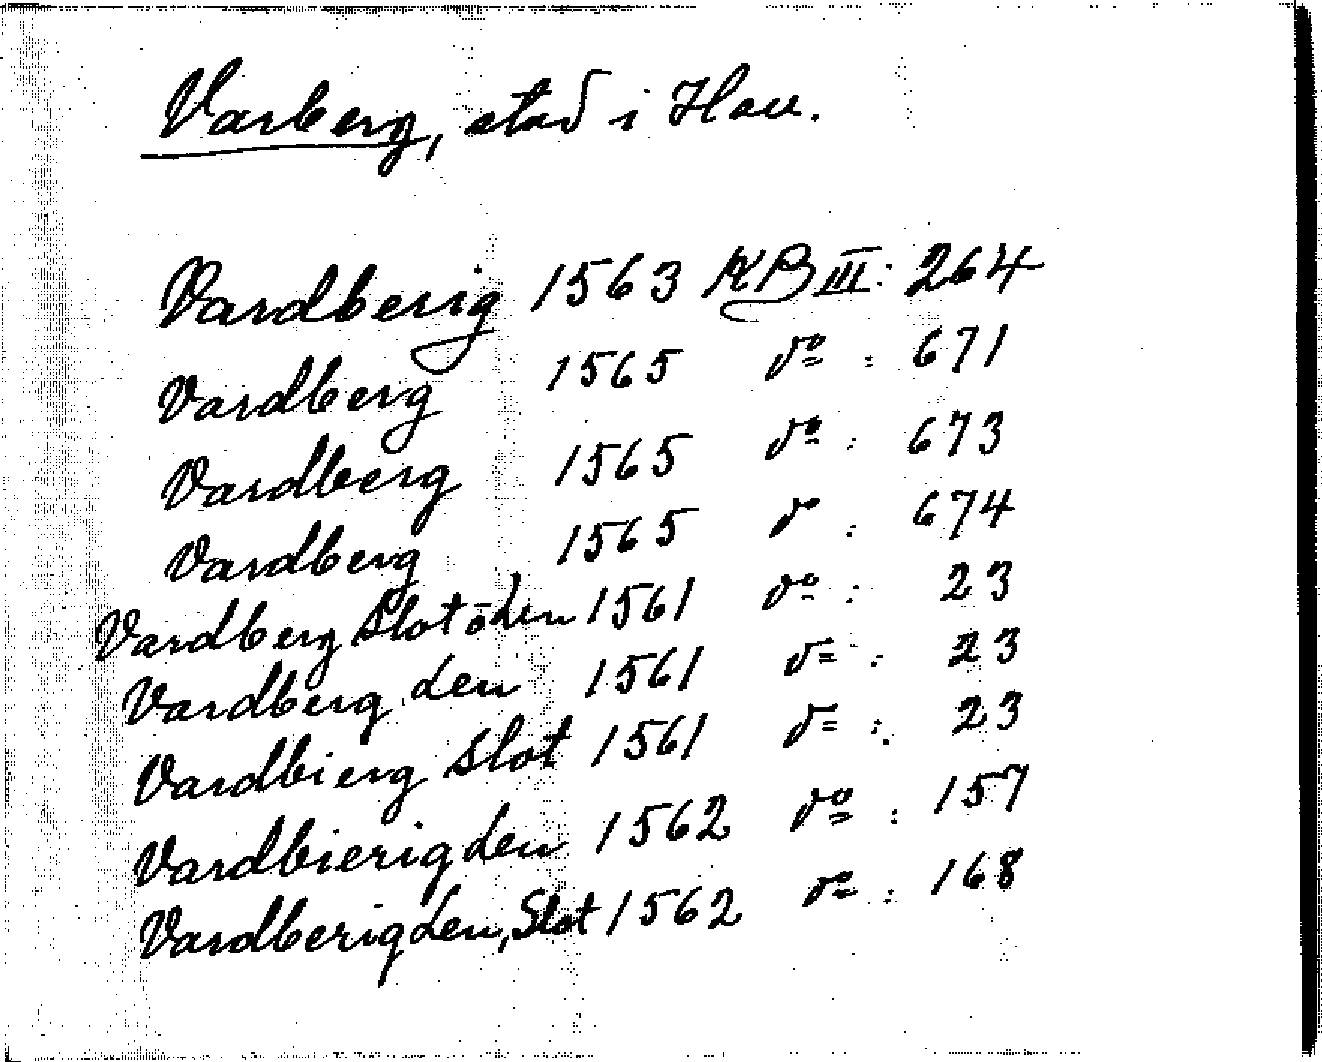 Varberg, stad i Hall.
Vardberig 1563 KB III: 264
Vardberg 1565 do : 671
Vardberg 1565 do : 673
Vardberg 1565 d : 674
Vardberg Slot oden 1561 do : 23
Vardberg den 1561 do : 23
Vardbierg Slot 1561 do : 23
Vardbierig den 1562 do : 157
Vardberig den, Slot 1562 do : 168